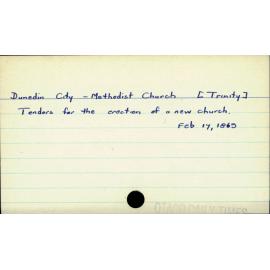 Dunedin City - Methodist Church [Trinity]
Tenders for the erection of a new church.
Feb 17, 1869
OTAGO DAILY TIMES